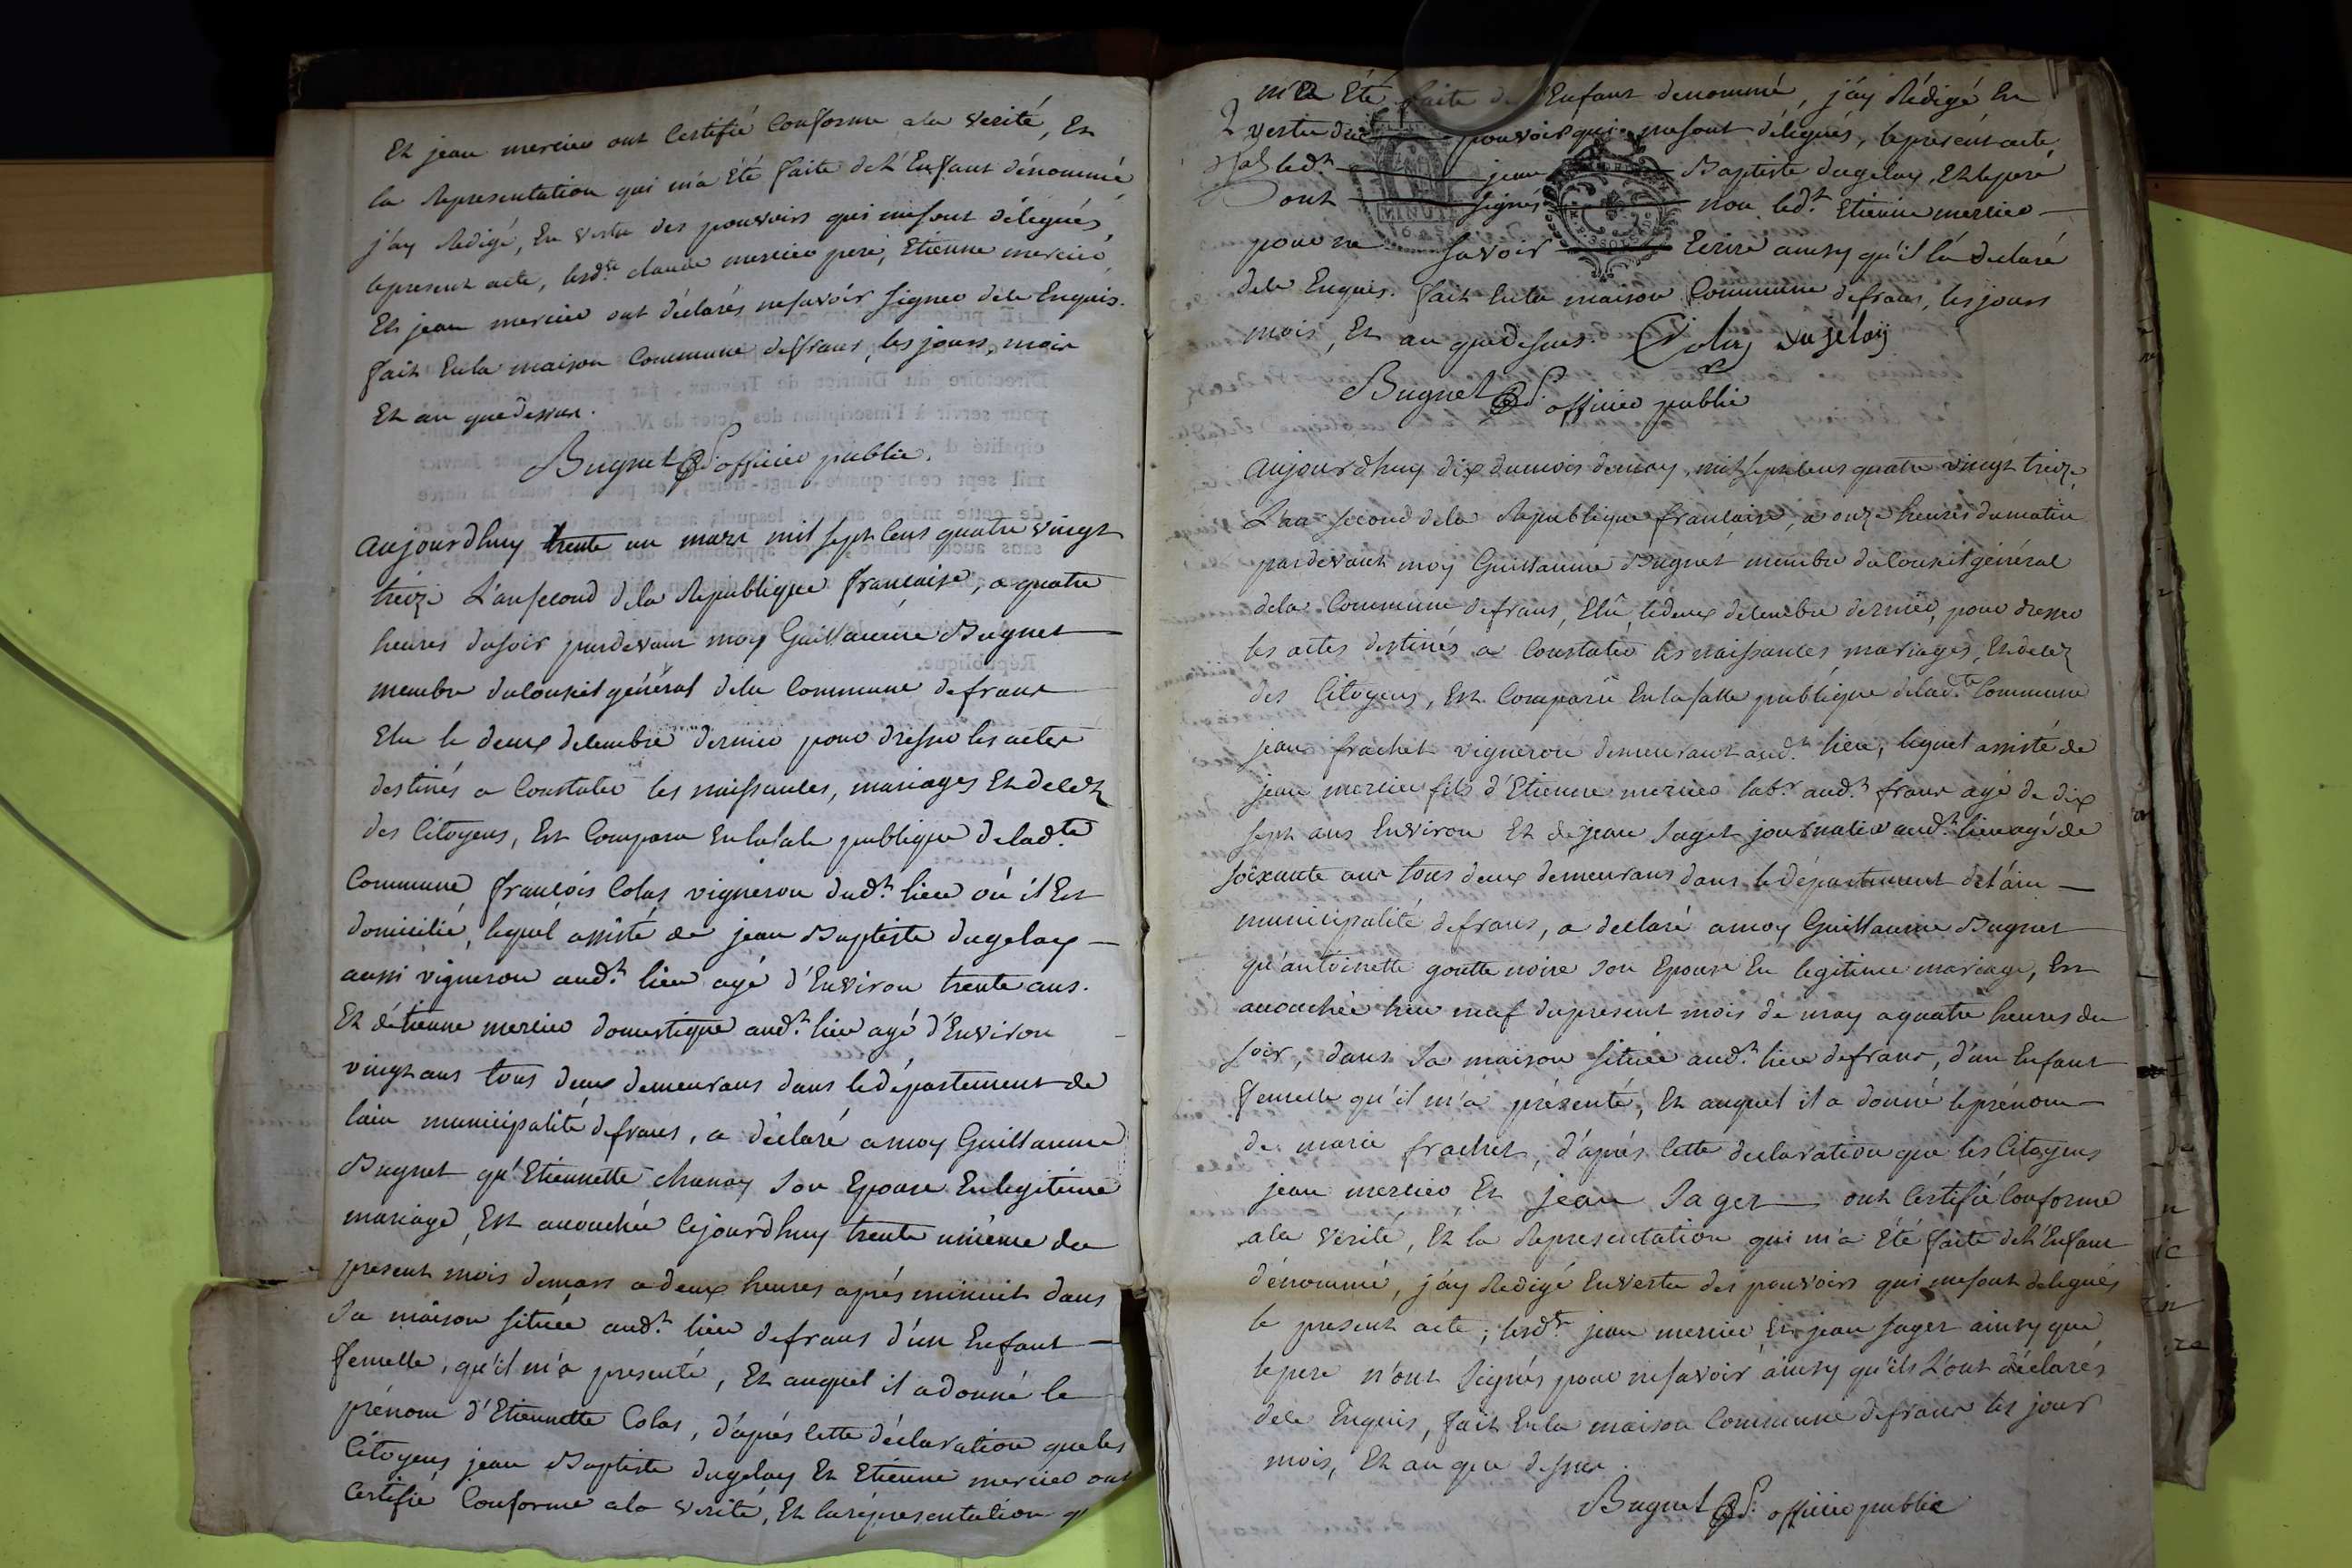 Et jean mercier ont Certifié Conforme ala verité, Et
la Representation qui m'a Eté faite de L'Enfant dénommé
j'ay Redigé, En vertu des pouvoirs qui me sont délegués,
le present acte, lesdts. claude mercier pere, Etienne mercier,
Et jean mercier ont déclarés ne savoir signer de ce Enquis.
fait En la maison Commune de frans, les jours, mois
Et an que dessus.
Bugnet officier public.
aujourdhuy trente un mars mil sept Cens quatre vingt
treize L'an second de la Republique francaise, a quatre
heures du soir pardevant moy Guillaume Bugnet
membre du Conseil général de la Commune de frans
Elu le deux decembre dernier pour dresser les actes
destinés a Constater les naissances, mariages Et décez
des Citoyens, Est Comparu En la sale publique de ladte.
Commune, françois Colas vigneron dudt. lieu où il Est
domicilié, lequel assisté de jean Baptiste dugelay
aussi vigneron audt. lieu agé d'Environ trente ans.
Et d'étienne mercier domestique audt. lieu agé d'Environ
vingt ans tous deux demeurans dans le département de
lain municipalité de frans, a déclaré a moy Guillaume
Bugnet qu'Etiennette chanay son Epouse En legitime
mariage, Est accouchée cejourdhuy trente unième du
présent mois de mars a deux heures après minuit dans
sa maison située audt. lieu de frans d'un Enfant
femelle, qu'il m'a presenté, Et auquel il a donné le
prénom d'Etiennette Colas, d'après Cette déclaration que les
Citoyens jean Baptiste dugelay Et Etienne mercier ont
Certifié Conforme ala verité, Et la représentation q
m'a Eté faite de L'Enfant denommé, j'ay Rédigé En
vertu des pouvoirs qui me sont délegués, le présent acte,
ledt. jean Baptiste dugelay, Et le pere
ont signés non ledt. Etienne mercier
pour ne savoir Ecrire ainsy qu'il l'a declaré
de ce Enquis. fait En la maison Commune de frans, les jours
mois, Et an que dessus. Colas dugelay
Bugnet officier public
aujourdhuy dix du mois de may, mil sept Cens quatre vingt treize,
L'an second de la Republique francaise, a onze heures du matin
pardevant moy Guillaume Bugnet membre du Conseil général
de la Commune de frans, Elu, le deux decembre dernier, pour dresser
les actes destinés a Constater les naissances, mariages, Et décez
des Citoyens, Est Comparu En la salle publique de ladte. Commune
jean frachet vigneron demeurant audt. lieu, lequel assisté de
jean mercier fils d'Etienne mercier labr. audt. frans agé de dix
sept ans Environ Et de jean sager journalier audt. lieu agé de
soixante ans tous deux demeurans dans le département de l'ain
municipalité de frans, a declaré a moy Guillaume Bugnet
qu'antoinette goutte noire son Epouse En legitime mariage, Est
accouchée hier neuf du present mois de may a quatre heures du
soir, dans sa maison située audt. lieu de frans, d'un Enfant
femelle qu'il m'a présenté, Et auquel il a donné le prénom
de marie frachet, d'après Cette declaration que les Citoyens
jean mercier Et jean sager ont Certifié Conforme
ala vérité, Et la Representation qui m'a Eté faite de L'Enfant
dénommé, j'ay Redigé En vertu des pouvoirs qui me sont delegués
le present acte, lesdts. jean mercier Et jean sager ainsy que
le pere n'ont signés pour ne savoir ainsy qu'ils L'ont déclarés
de ce Enquis, fait En la maison Commune de frans les jour
mois, Et an que dessus.
Bugnet officier public